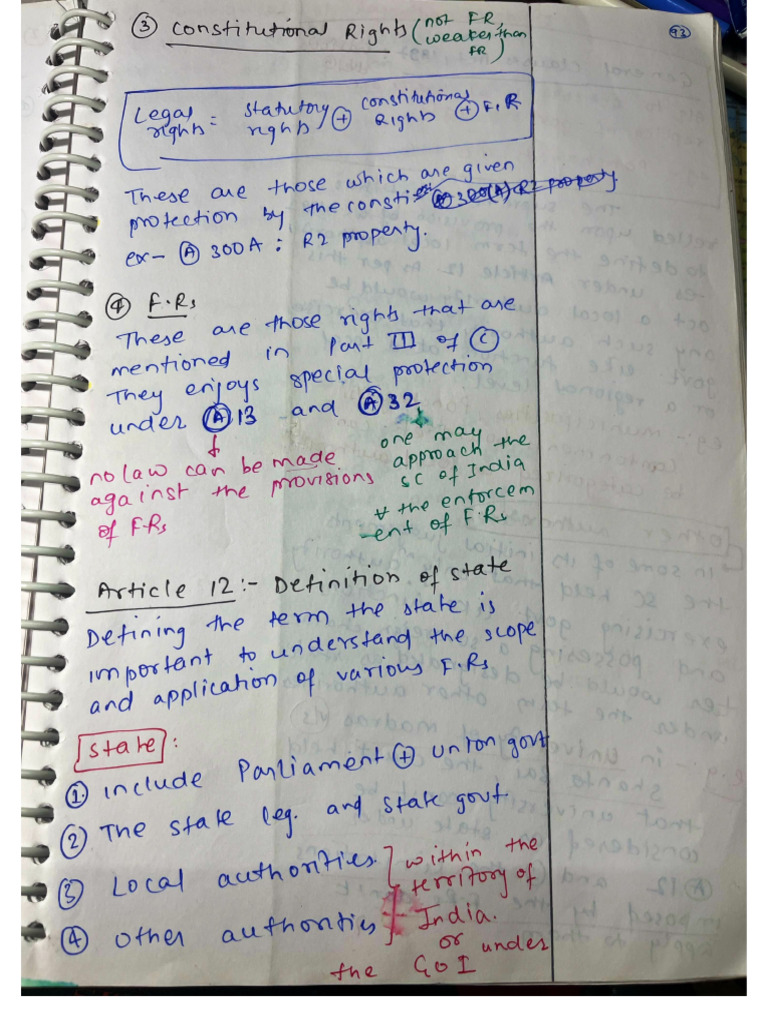 ③ Constitutional Rights (not FR, weaker than FR)
93
Legal rights = statutory rights ⊕ constitutional Rights ⊕ F.R
These are those which are given
protection by the consti
ex- Ⓐ 300A : R2 property.
④ F.Rs
These are those rights that are
mentioned in Part III of Ⓒ
They enjoys special protection
under Ⓐ13 and Ⓐ32
↓ no law can be made
against the provisions
of F.Rs
↓ one may
approach the
SC of India
∀ the enforcem
-ent of F.Rs
Article 12:- Definition of state
Defining the term the state is
important to understand the scope
and application of various F.Rs
State:
① include Parliament ⊕ union govt
② The state leg. and state govt.
③ Local authorities
④ other authorities
within the
territory of
India.
or under
the GOI